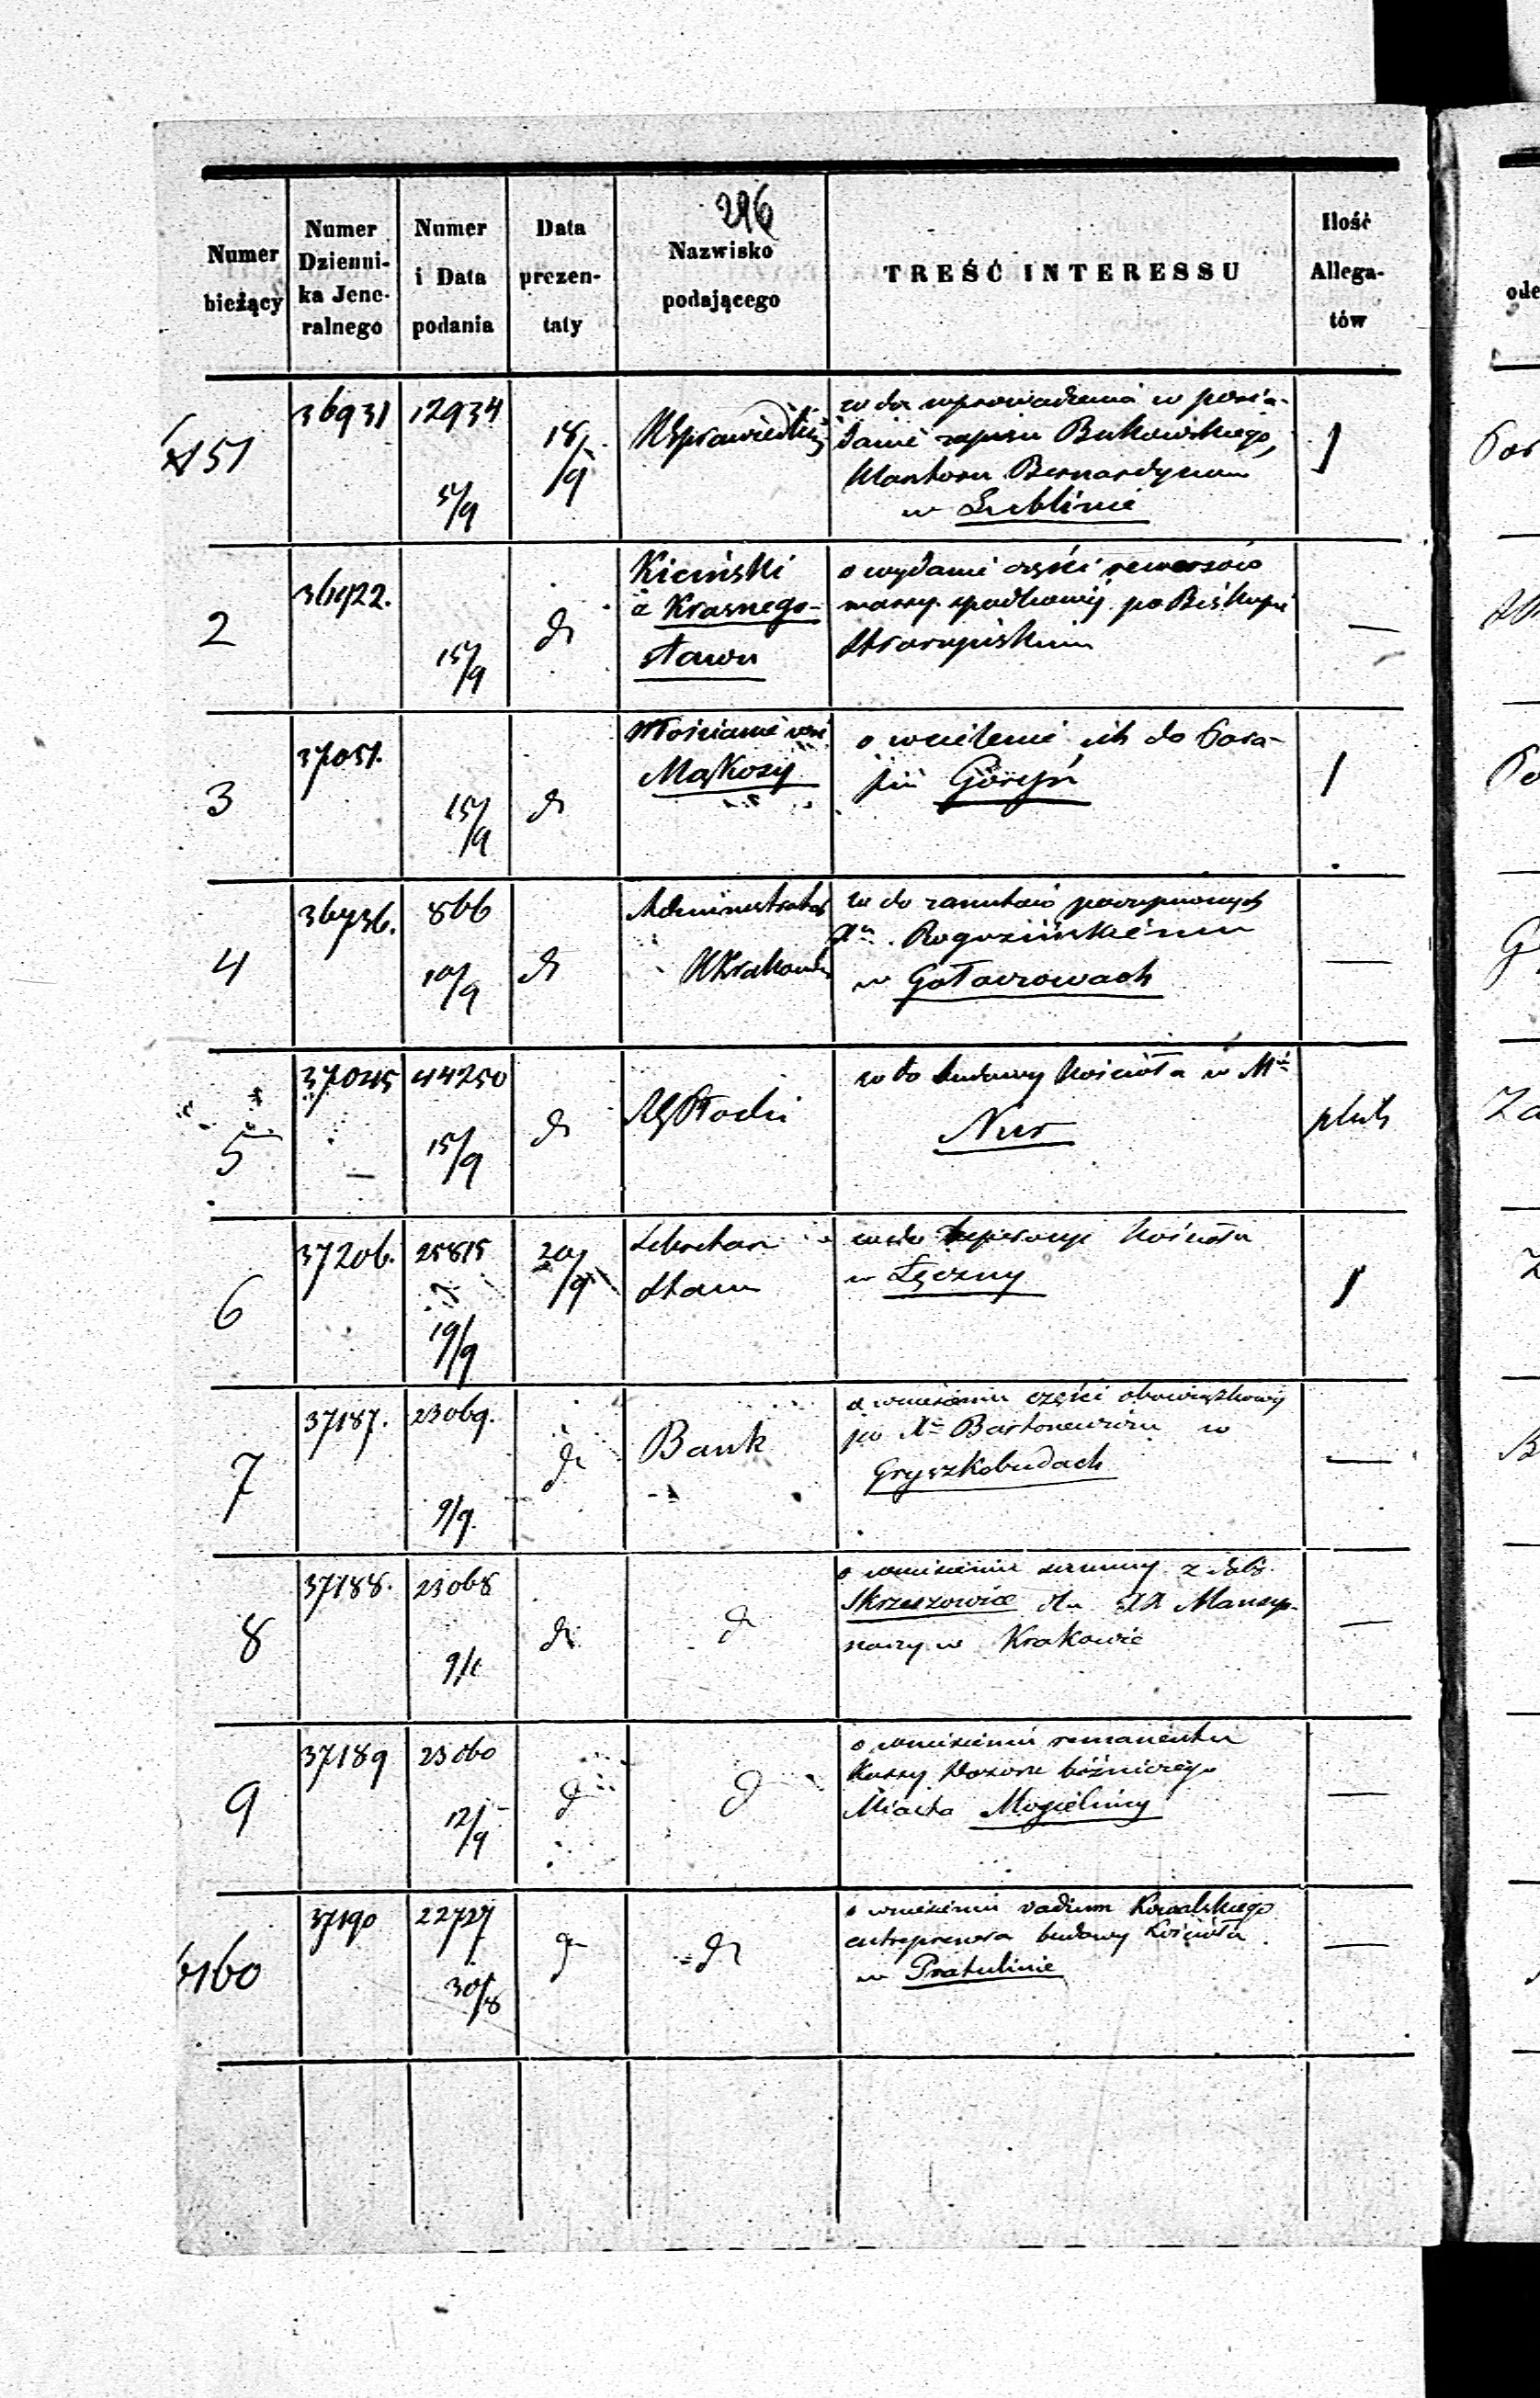 296
Numer bieżący
Numer Dzienni-
ka Jene-
ralnego
Numer
i Data
podania
Data
prezen-
taty
Nazwisko
podającego
TREŚĆ INTERESSU
Ilość
Allega-
tów
6151 36931 12934 5/9 18/9 KSprawiedliw 1
wda wprowadzenia w posia-
danie zapisu Bukowskiego,
Klasztoru Bernardynów
w Lublinie
2 36922. 15/9 dt —
Kiciński
z Krasnego-
stawu
o wydanie części rewersów
massy spadkowej po Biskupie
Skarszewskim
3 37051. 15/9 dt 1
Włościanie wsi
Maykozy
o wcielenie ich do Para-
fii Goryń
4 36936. 866 10/9 dt —
Administrator
w do zarzutów poczynionych
Xu Rogozińskiemu
w Gołaczowach
5 37045 44250 15/9 dt plik
RgPłocki
w do budowy kościoła w Mie
Nur
6 37206. 25815 19/9 20/9 1
Sekretarz
Stanu
w do reperacyi kościoła
w Łęczny
7 37187. 23069. 9/9 dt Bank —
o wniesieniu części obowiązkowej
po Xu Bartoncewiczu w
Gryszkobudach
8 37188. 23068 dt dt —
o wniesieniu summy z dóbr
Skrzeszowice dla XX Mansyo-
narzy w Krakowie
9 37189 23060 12/9 d d —
o wniesieniu remanentu
Kassy Dozoru bóżniczego
Miasta Mogielnicy
6160 37190 22727 30/8 dt dt —
o wniesieniu vadium Kowalskiego
entreprenera budowy Kościoła
w Pratulinie